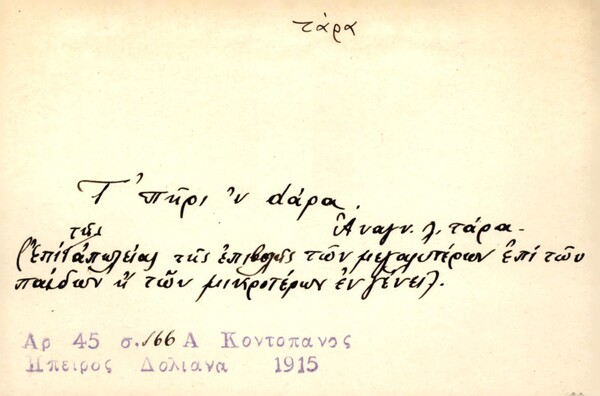 τάρα
Τ' πῆρι 'ν dάρα.
Ἀναγν. λ. τάρα.
τῆς
(Ἐπὶ ἀπωλείας τῆς ἐπιβολῆς τῶν μεγαλυτέρων ἐπὶ τῶν
παίδων ἢ τῶν μικροτέρων ἐν γένει).
Αρ 45 σ. 166 Α Κοντοπανος
Ηπειρος Δολιανα 1915